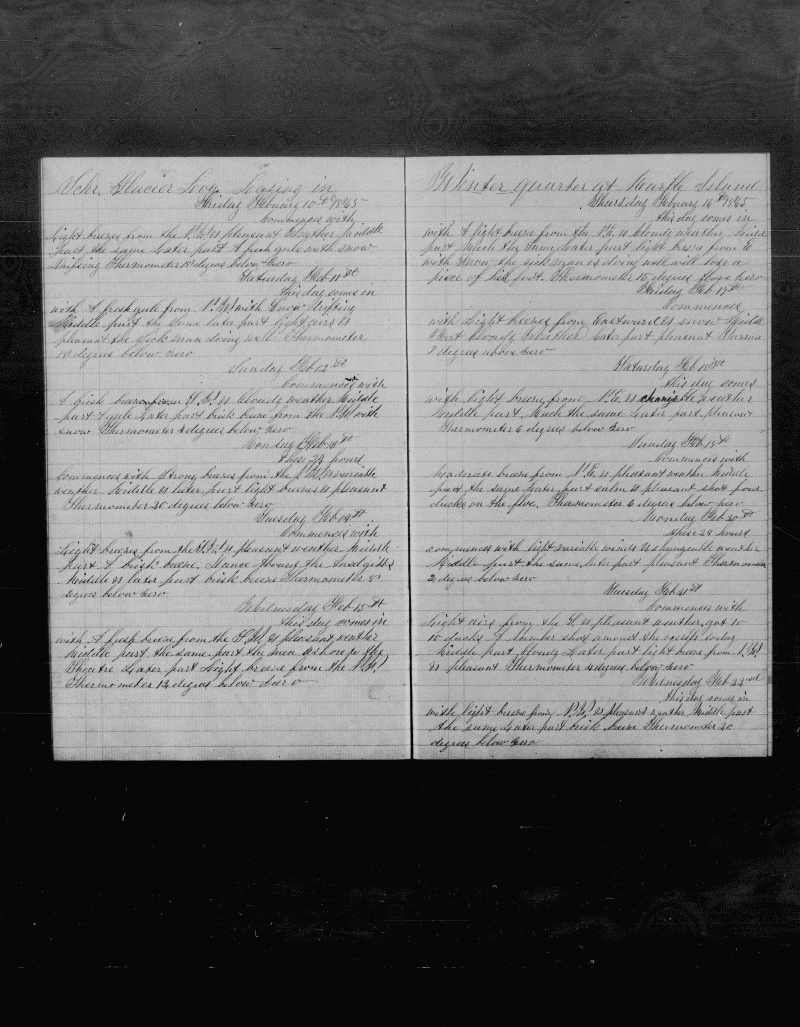 Schr. Glacier Log. Laying in
Friday Febuary 10th 1865
Commences with
Light breezes from the N.W. & pleasant Weather Middle
part the same Later part A fresh gale with snow
Drifting Thermometer 8 degees below zero
Saturday Feb 11th
this day comes in
with A fresh gale from N.W. with Snow drifting
Middle part the Same later part light airs &
pleasant the sick man doing well Thermometer
18 degrees below zero
Sunday Feb 12th
Commences with
A brisk breeze from & cloudy weather Middle
part A gale Later part brisk breese from the N.W with
snow Thermometer degrees below zero
Monday Feb 13th
these 24 hours
Commences with Strong breezes from the N.W. & variable
weather Middle & later part light breezes & pleasant
Thermometer 20 degrees below zero
Tuesday Feb 14th
Commences with
Light breezes from the & pleasant weather Middle
part A brisk breese
Middle & later part brisk breese Thermometer 8
degrees below zero
Wednesday Feb 15th
this day comes in
with A fresh breese from the & pleasant weather
Middle part the same part the men ashore to the
Theatre Later part Light breeses from the N.W.
Thermometer 12 degrees below zero
Winter quarter at Marble Island
Thursday Febuary 16th 1865
this day comes in
with A light breese from the N.E. & cloudy weather, Middle
part Much the Same Later part light breese from E
with Snow the sick man is doing well will lose a
piece of his foot. Thermometer 15 degrees above zero
Friday Feb 17th
Commences
with Light breeses from Eastward & snow Middle
Part cloudy Weather Later part pleasant Thermom
8 degrees above zero
Saturday Feb 18th
this day comes
with light breese from N.E. & weather
Middle part, Much the same Later part pleasant
Thermometer 6 degrees below zero
Sunday Feb 19th
Commences with
Moderate breese from N.E. & pleasant weather Middle
part the same later part calm & pleasant shot four
ducks on the floe. Thermometer 6 degrees below zero
Monday Feb 20th
these 24 hours
commences with light variable winds & changeable weather
Middle part the same, later part pleasant Thermometer
2 degrees below zero
Tuesday Feb 21st
Commences with
Light airs from the & pleasant weather, got 10
ducks A number shot amonst the vessels today
Middle part cloudy Later part light breese from N.W.
& pleasant Thermometer degrees below zero
Wednesday Feb 22nd
this day comes in
with light breese from N.W. & pleasant weather Middle part
the same Later part brisk breese Thermometer 20
degrees below zero